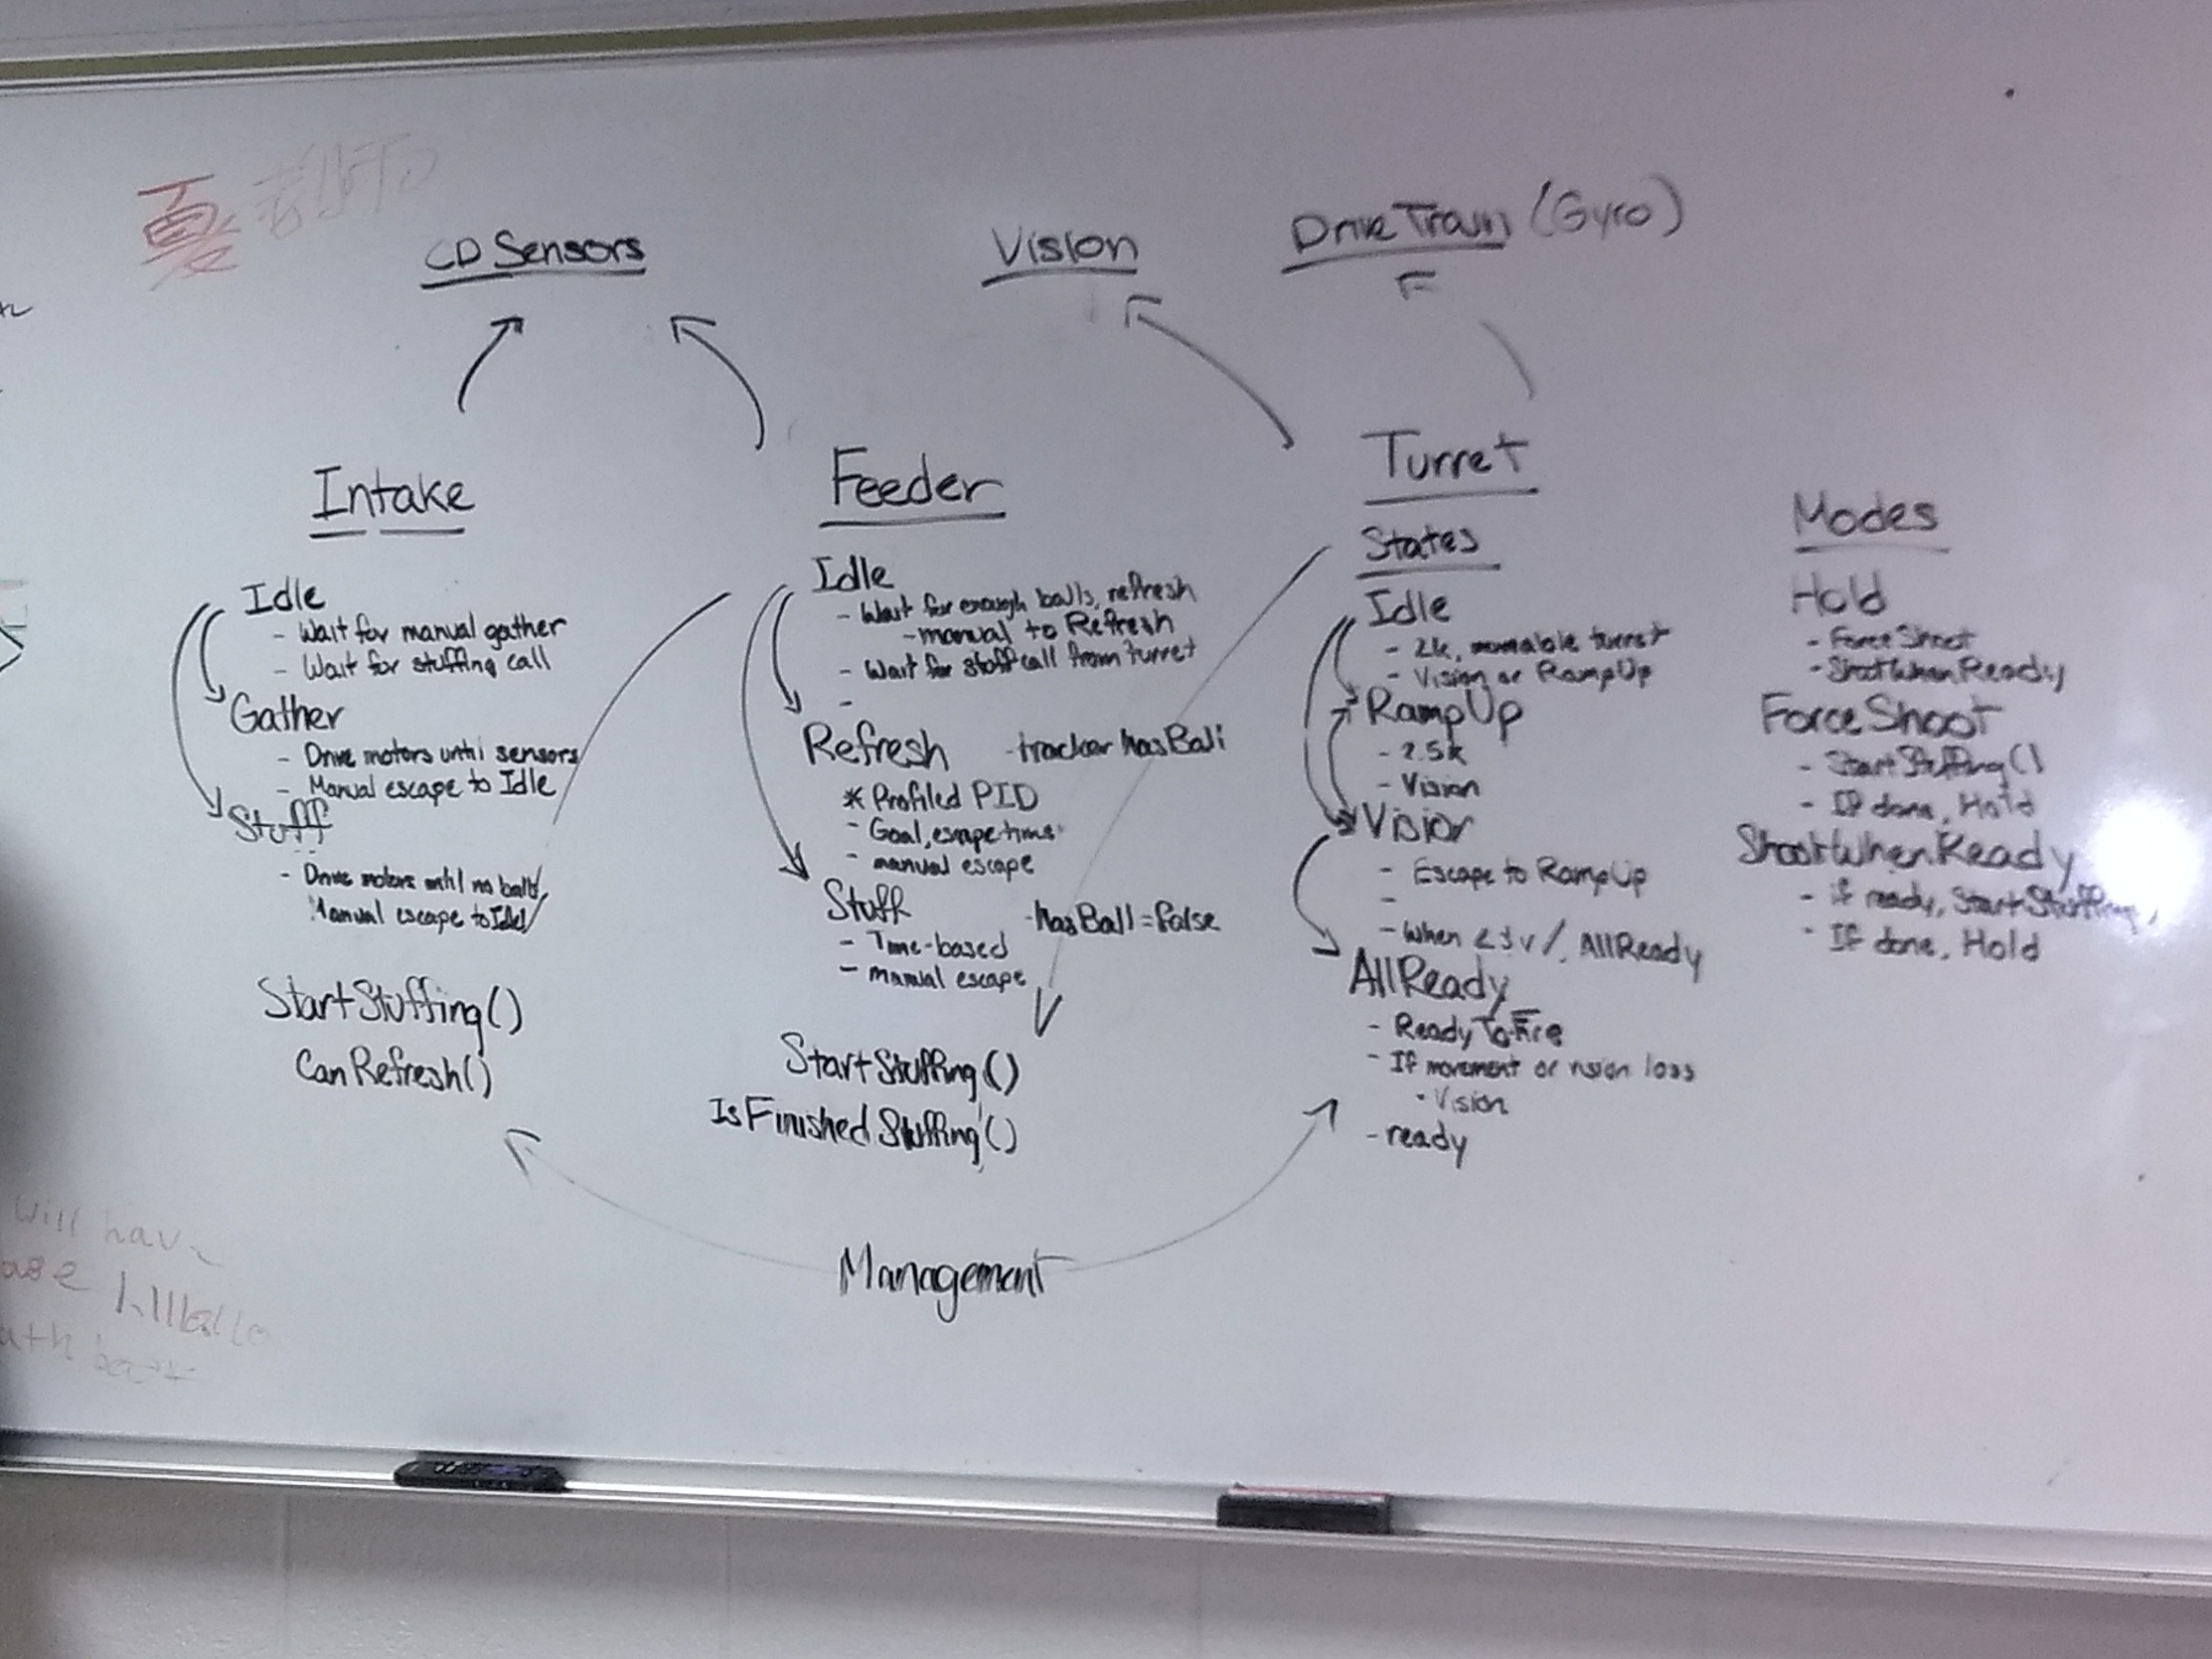 夏
CD Sensors
Vision
DriveTrain (Gyro)
Intake
Idle
- Wait for manual gather
- Wait for stuffing call
Gather
- Drive motors until sensors
- Manual escape to Idle
Stuff
- Drive motors until no balls
Manual escape to Idle
StartStuffing()
CanRefresh()
Feeder
Idle
- Wait for enough balls, refresh
- manual to Refresh
- Wait for stuff call from turret
-
Refresh - tracker hasBall
* Profiled PID
- Goal, escape time
- manual escape
Stuff - hasBall = false
- Time-based
- manual escape
StartStuffing()
IsFinishedStuffing()
Turret
States
Idle
- 2k, movable turret
- Vision or RampUp
RampUp
- 2.5k
- Vision
Vision
- Escape to RampUp
-
- When AllReady
AllReady
- ReadyToFire
- If movement or vision loss
- Vision
- ready
Modes
Hold
- ForceShoot
- ShootWhenReady
ForceShoot
- StartStuffing()
- If done, Hold
ShootWhenReady
- if ready, StartStuffing
- If done, Hold
Management
will have